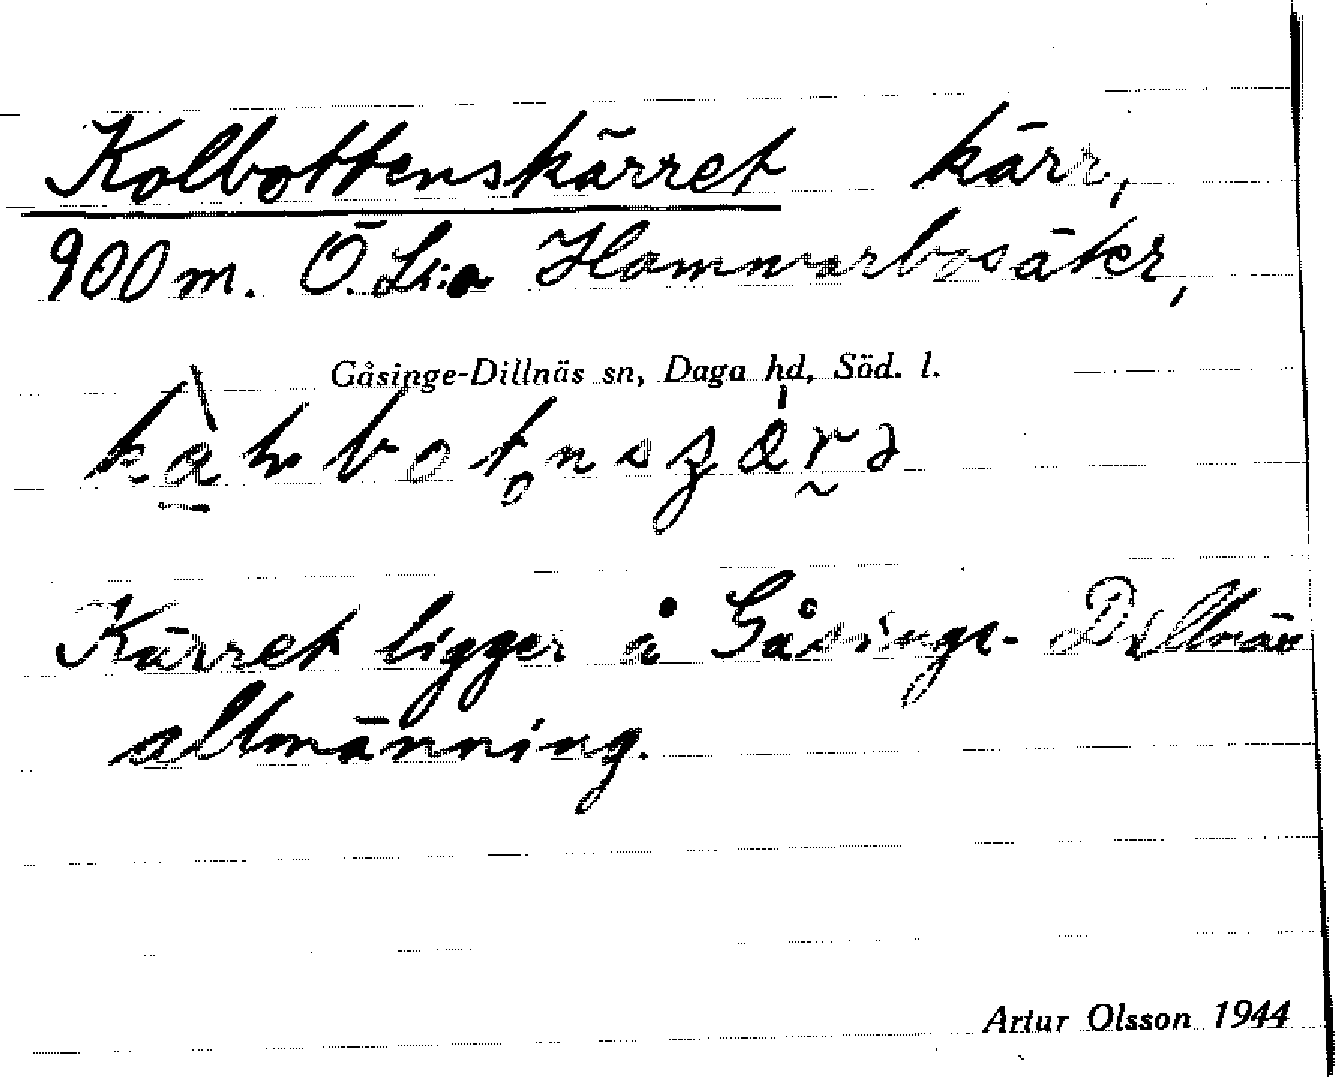 Kolbottenskärret kärr,
900 m. Ö. L:a Hammarbosäter,
Gåsinge-Dillnäs sn, Daga hd, Söd. l.
Kärret ligger å Gåsinge-Dillnäs
allmänning.
Artur Olsson 1944